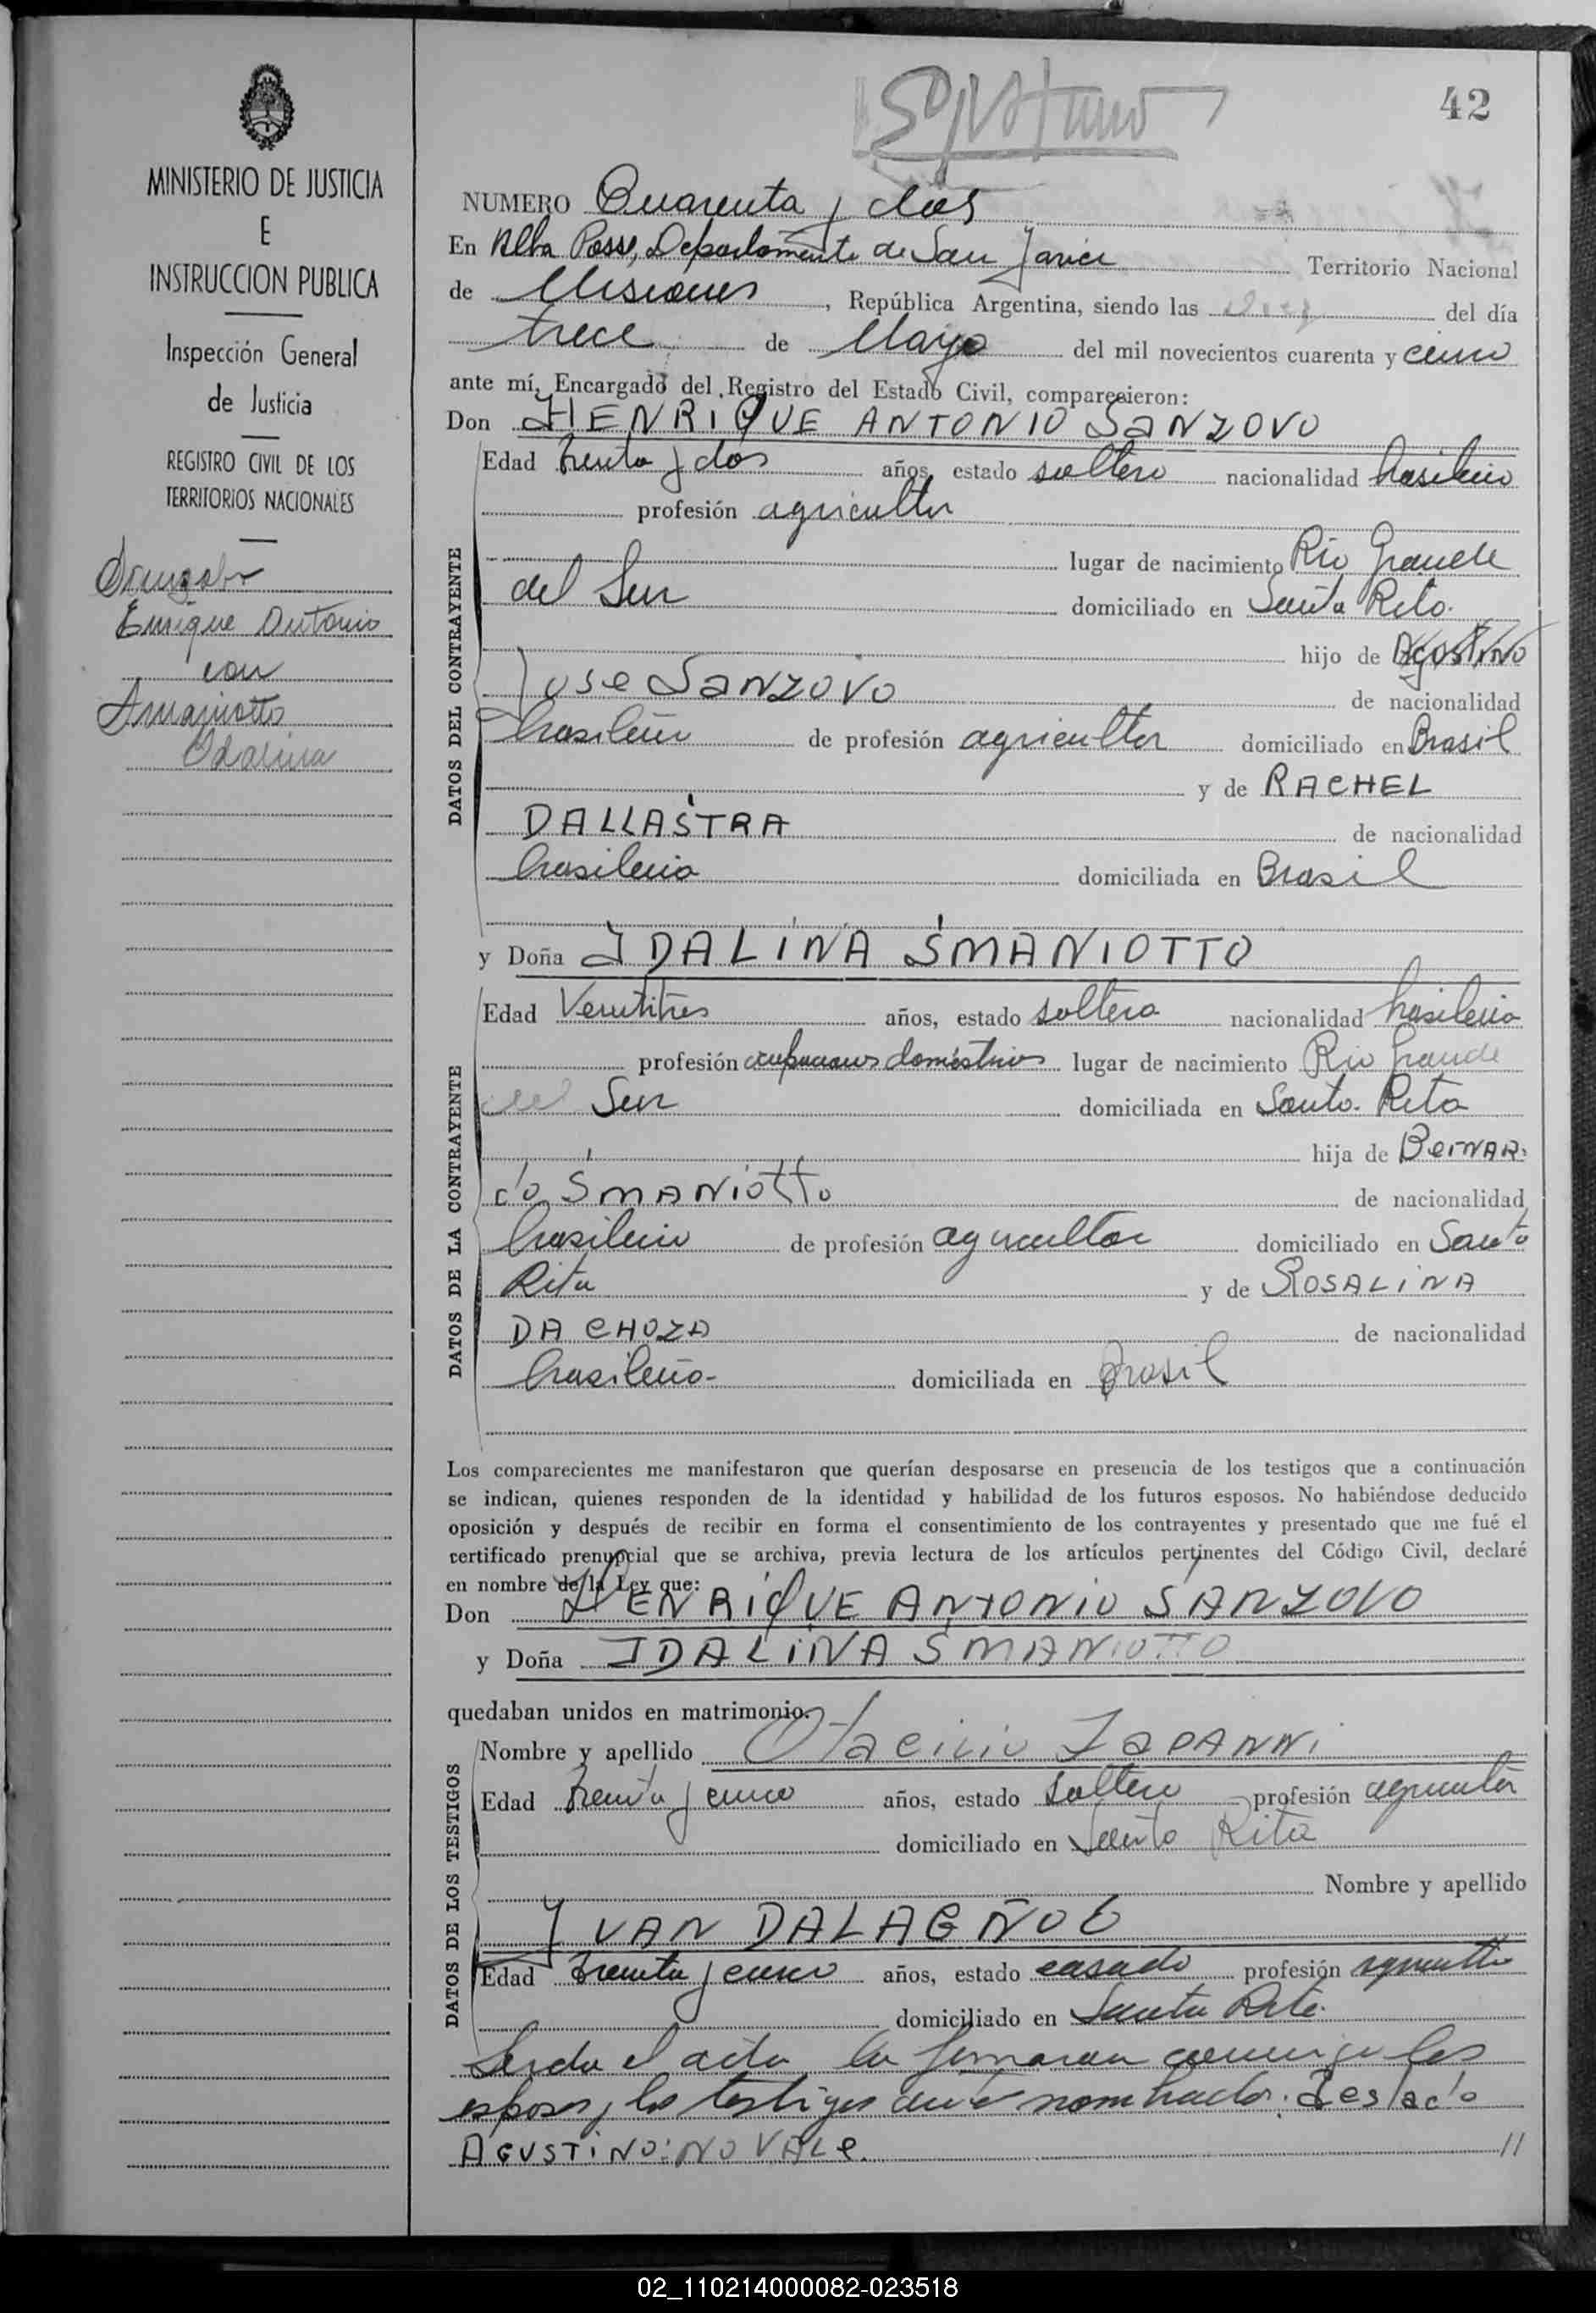 42
MINISTERIO DE JUSTICIA
E
INSTRUCCION PUBLICA
Inspección General
de Justicia
REGISTRO CIVIL DE LOS
TERRITORIOS NACIONALES
Enrique Antonio
con
Smaniotto
Idalina
NUMERO Cuarenta y dos
En Alba Posse, Departamento de San Javier Territorio Nacional
de Misiones, República Argentina, siendo las del día
trece de Mayo del mil novecientos cuarenta y cinco
ante mí, Encargado del Registro del Estado Civil, comparecieron:
Don HENRIQUE ANTONIO SANZOVO
DATOS DEL CONTRAYENTE
Edad treinta y dos años, estado soltero nacionalidad brasileño
profesión agricultor
lugar de nacimiento Rio Grande
del Sur domiciliado en Santa Rita
hijo de AGOSTINO
JOSE SANZOVO de nacionalidad
brasileño de profesión agricultor domiciliado en Brasil
y de RACHEL
DALLASTRA de nacionalidad
brasileña domiciliada en Brasil
y Doña IDALINA SMANIOTTO
DATOS DE LA CONTRAYENTE
Edad Veintitres años, estado soltera nacionalidad brasileña
profesión ocupaciones domésticas lugar de nacimiento Rio Grande
del Sur domiciliada en Santa Rita
hija de BERNAR
do SMANIOTTO de nacionalidad
brasileño de profesión agricultor domiciliado en Santa
Rita y de ROSALINA
DA CHOZA de nacionalidad
brasileña domiciliada en Brasil
Los comparecientes me manifestaron que querían desposarse en presencia de los testigos que a continuación
se indican, quienes responden de la identidad y habilidad de los futuros esposos. No habiéndose deducido
oposición y después de recibir en forma el consentimiento de los contrayentes y presentado que me fué el
certificado prenupcial que se archiva, previa lectura de los artículos pertinentes del Código Civil, declaré
en nombre de la Ley que:
Don HENRIQUE ANTONIO SANZOVO
y Doña IDALINA SMANIOTTO
quedaban unidos en matrimonio.
DATOS DE LOS TESTIGOS
Nombre y apellido Otacilio ZAPANNI
Edad treinta y cinco años, estado soltero profesión agricultor
domiciliado en Santa Rita
Nombre y apellido
IVAN DALAGÑOL
Edad treinta y cinco años, estado casado profesión agricultor
domiciliado en Santa Rita
Leida el acta la firmaron conmigo los
esposos y los testigos ante nombrados. Testado
AGUSTINO: NO VALE. //
02_110214000082-023518